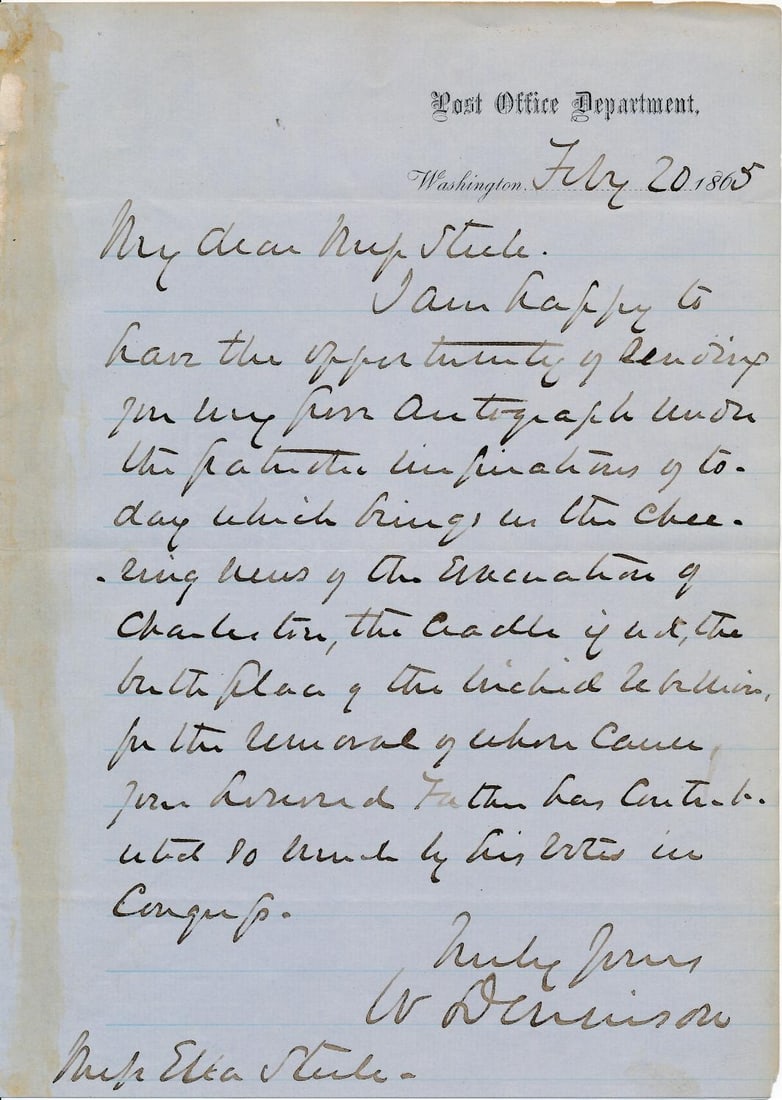 Post Office Department,
Washington, Feby 20 1865
My dear Miss Steele.
I am happy to
have the opportunity of sending
you my poor Autograph under
the patriotic inspirations of to-
day which brings us the chee-
-ring news of the Evacuation of
Charleston, the Cradle if not, the
birth place of the wicked rebellion,
for the removal of whose Cause,
your honored Father has Contrib-
uted so much by his votes in
Congress.
Truly Yours
W Dennison
Miss Ella Steele-